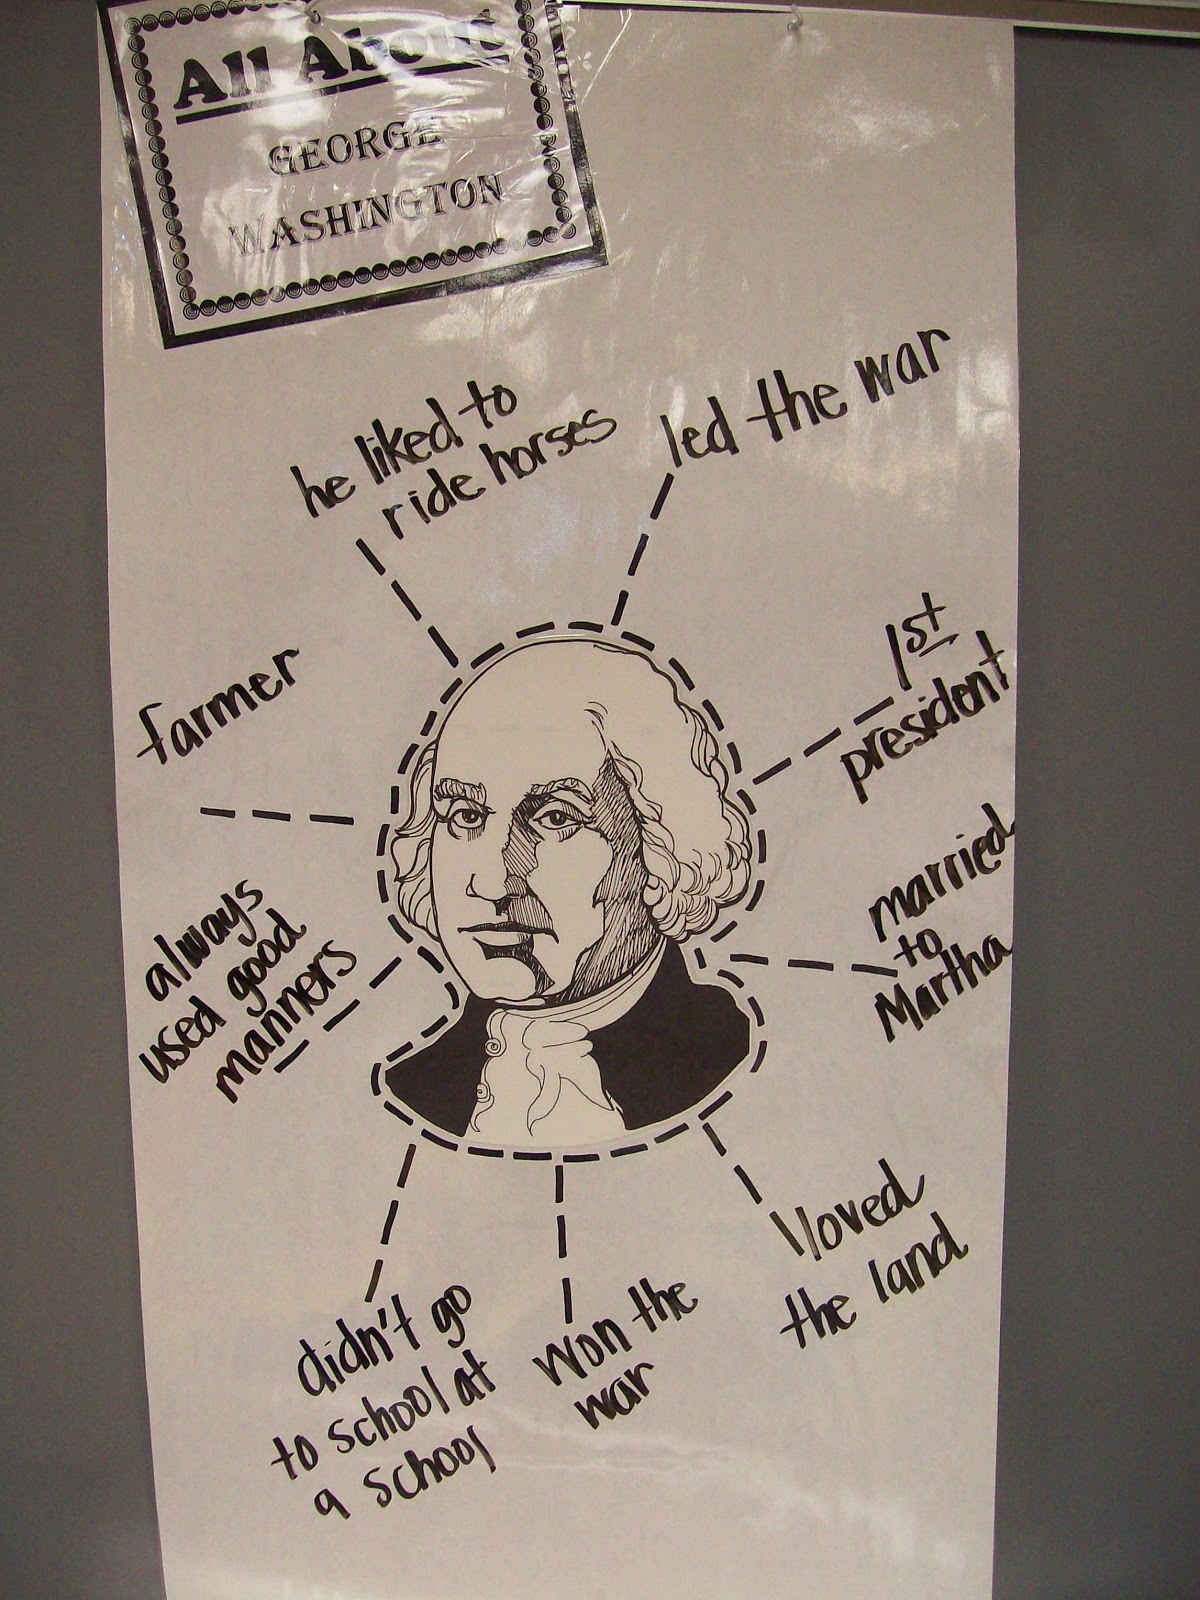 All About
GEORGE
WASHINGTON
he liked to
ride horses
led the war
1st
president
farmer
married
to
Martha
always
used good
manners
lloved
the land
didn't go
to school at
a school
won the
war